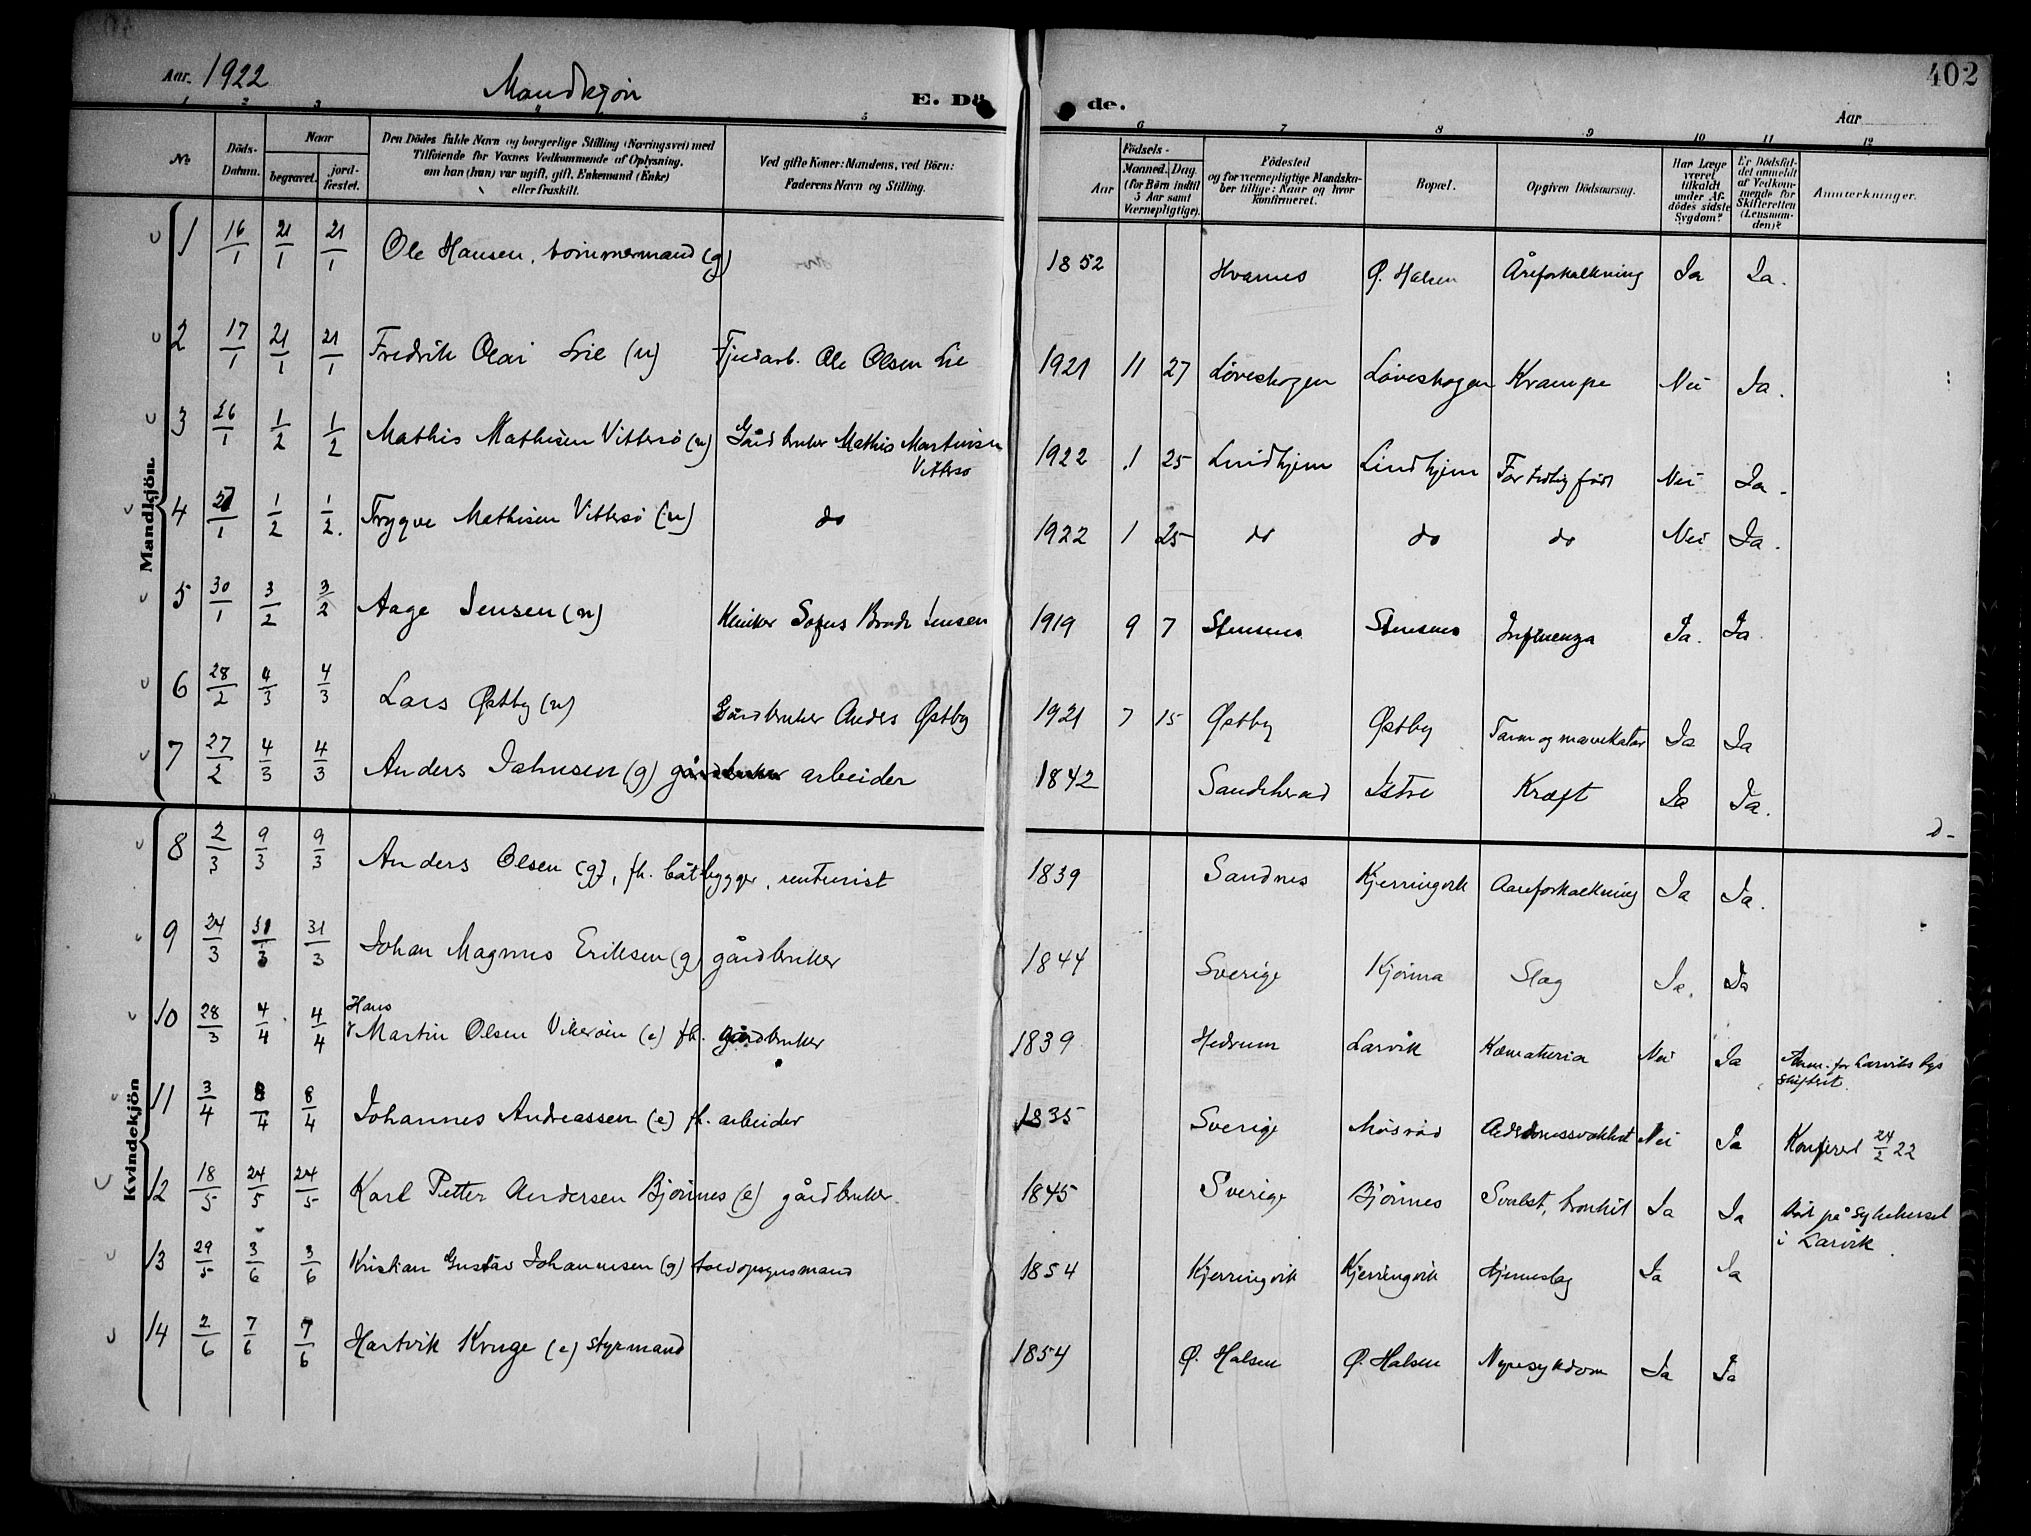 402
Aar. 1922
Mandkjøn
E. Dö de.
Aar
1 2 3 4 5 6 7 8 9 10 11 12
No
Döds-Datum.
Naar
begravet.
jord-fæstet.
Den Dödes fulde Navn og borgerlige Stilling (Næringsvei) med
Tilföiende for Voxnes Vedkommende af Oplysning,
om han (hun) var ugift, gift, Enkemand (Enke)
eller fraskilt.
Ved gifte Koner: Mandens, ved Börn:
Faderens Navn og Stilling.
Födsels-
Aar
Maaned. Dag
(for Börn indtil
5 Aar samt
Værnepligtige).
Födested
og for værnepligtige Mandska-
ber tillige: Naar og hvor
konfirmeret.
Bopæl.
Opgiven Dödsaarsag.
Har Læge
været
tilkaldt
under Af-
dödes sidste
Sygdom?
Er Dödsfal-
det anmeldt
af Vedkom-
mende for
Skifteretten
(Lensman-
den)?
Anmærkninger.
Mandkjön.
Kvindekjön
1 16/1 21/1 21/1 Ole Hansen, tømmermand (g) 1852 Hvarnes Ø. Halsen Åreforkalkning Ja Ja.
2 17/1 21/1 21/1 Fredrik Olai Lie (u) Fjeldarb. Ole Olsen Lie 1921 11 27 Løveskogen Løveskogen Krampe Nei Ja.
3 26/1 1/2 1/2 Mathis Mathisen Vittersø (u) Gårdbruker Mathis Martinsen
Vittersø 1922 1 25 Lindhjem Lindhjem For tidlig født Nei Ja.
4 27/1 1/2 1/2. Trygve Mathisen Vittersø (u) do 1922 1 25 do do do Nei Ja.
5 30/1 3/2 3/2 Aage Jensen (u) Sofus Jensen 1919 9 7 Stensnes Stensnes Influenza Ja. Ja.
6 28/2 4/3 4/3 Lars Østby (u) Gårdbruker Anders Østby 1921 7 15 Østby Østby Tarm og mavekatar Ja Ja
7 27/2 4/3 4/3 Anders Jahnsen (g) gårdbruker arbeider 1842 Sandeherad Istre Kræft Ja Ja.
8 2/3 9/3 9/3 Anders Olsen (g), fh. båtbygger, rentenist 1839 Sandnes Kjerringvik Aareforkalkning Ja Ja.
9 24/3 31/3 31/3 Johan Magnus Eriksen (g) gårdbruker 1844 Sverige Kjønna Slag Ja. Ja
10 28/3 4/4 4/4 Hans
Martin Olsen Vikerøen (e) fh. gårdbruker 1839 Hedrum Larvik Hæmaturia Nei Ja Anm. for Larviks bys
skifteret.
11 3/4 8/4 8/4 Johannes Andreassen (e) fh. arbeider 1835 Sverige Møsrød Alderdomssvakhet Nei Ja 24/2 22
12 18/5 24/5 24/5 Karl Petter Andersen Bjønnes (e) gårdbruker 1845 Sverige Bjønnes Svulst, bronkit Ja Ja Død på sykehuset
i Larvik.
13 29/5 3/6 3/6 Kristian Gustav Johannesen (g) toldopsynsmand 1854 Kjerringvik Kjerringvik Hjerneslag Ja Ja
14 2/6 7/6 7/6 Hartvik Kruge (e) styrmand 1854 Ø. Halsen Ø. Halsen Nyresykdom Ja Ja